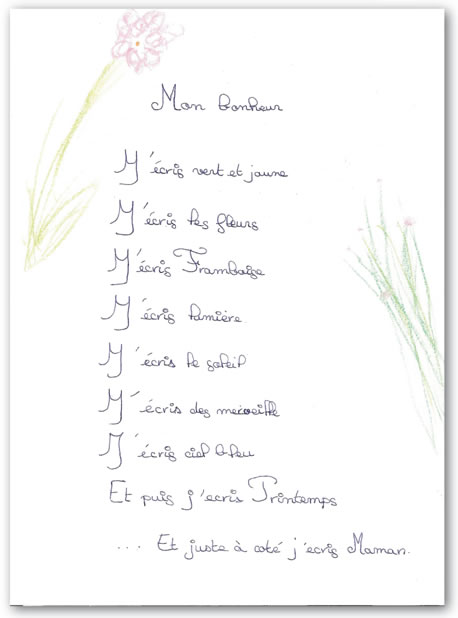 Mon bonheur
J'écris vert et jaune
J'écris les fleurs
J'écris Framboise
J'écris lumière
J'écris le soleil
J'écris des merveille
J'écris ciel bleu
Et puis j'ecris Printemps
... Et juste à coté j'ecris Maman.